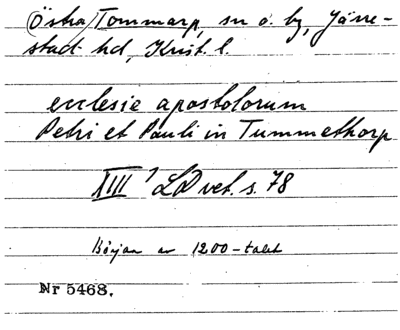 (Östra) Tommarp, sn o. by, Järre-
stad hd, Krist. l.
ecclesie apostolorum
Petri et Pauli in Tummethorp
XIII¹ LD vet. s. 78
Början av 1200-talet
Nr 5468.